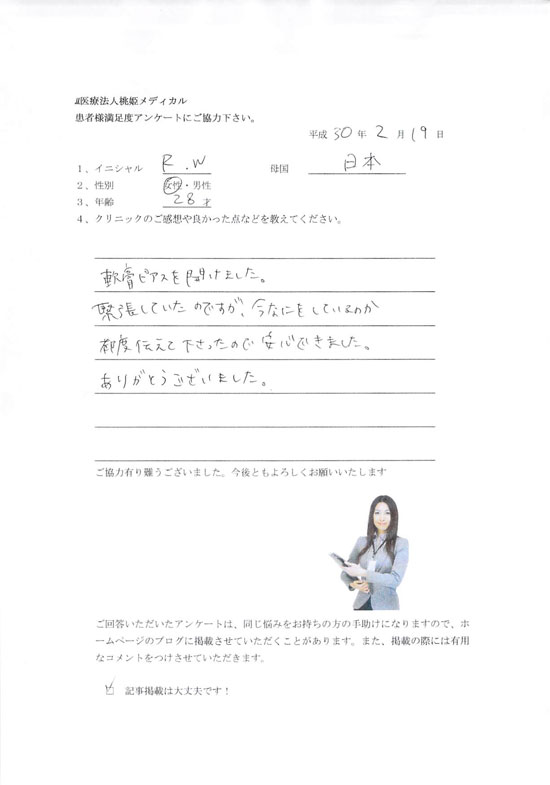 医療法人桃姫メディカル
患者様満足度アンケートにご協力下さい。
平成 30 年 2 月 19 日
1、イニシャル R.W 母国 日本
2、性別 女性・男性
3、年齢 28 才
4、クリニックのご感想や良かった点などを教えてください。
軟膏ピアスを開けました。
緊張していたのですが、今なにをしているのか
都度伝えて下さったので安心できました。
ありがとうございました。
ご協力有り難うございました。今後ともよろしくお願いいたします
ご回答いただいたアンケートは、同じ悩みをお持ちの方の手助けになりますので、ホ
ームページのブログに掲載させていただくことがあります。また、掲載の際には有用
なコメントをつけさせていただきます。
記事掲載は大丈夫です！